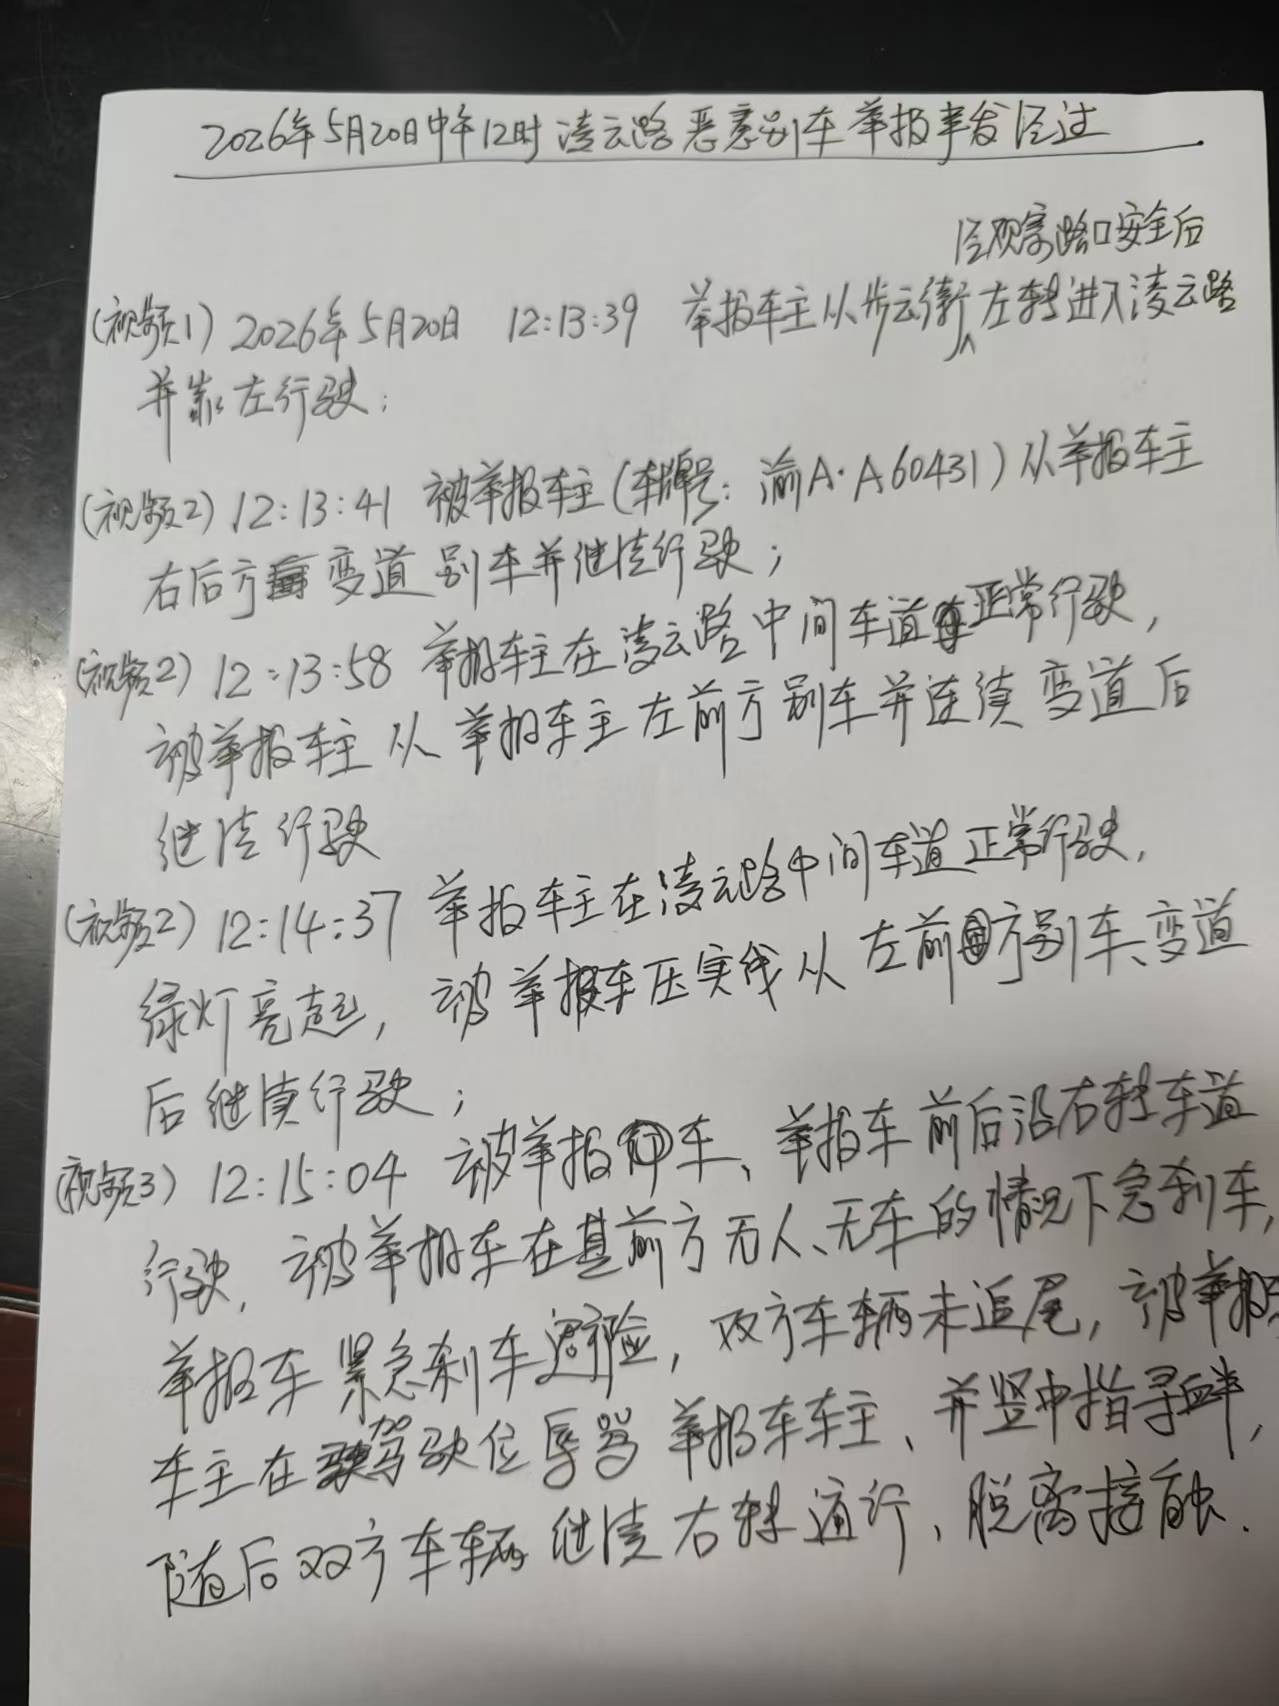 2026年5月20日中午12时凌云路恶意别车举报事发经过
经观察路口安全后
(视频1) 2026年5月20日 12:13:39 举报车主从步云街左转进入凌云路
并靠左行驶；
(视频2) 12:13:41 被举报车主(车牌号：渝A·A60431)从举报车主
右后方变道别车并继续行驶；
(视频2) 12:13:58 举报车主在凌云路中间车道正常行驶，
被举报车主从举报车主左前方别车并连续变道后
继续行驶
(视频2) 12:14:37 举报车主在凌云路中间车道正常行驶，
绿灯亮起，被举报车压实线从左前方别车、变道
后继续行驶；
(视频3) 12:15:04 被举报车、举报车前后沿右转车道
行驶，被举报车在其前方无人、无车的情况下急刹车，
举报车紧急刹车避险，双方车辆未追尾，被举报
车主在驾驶位辱骂举报车车主、并竖中指寻衅，
随后双方车辆继续右转通行、脱离接触.